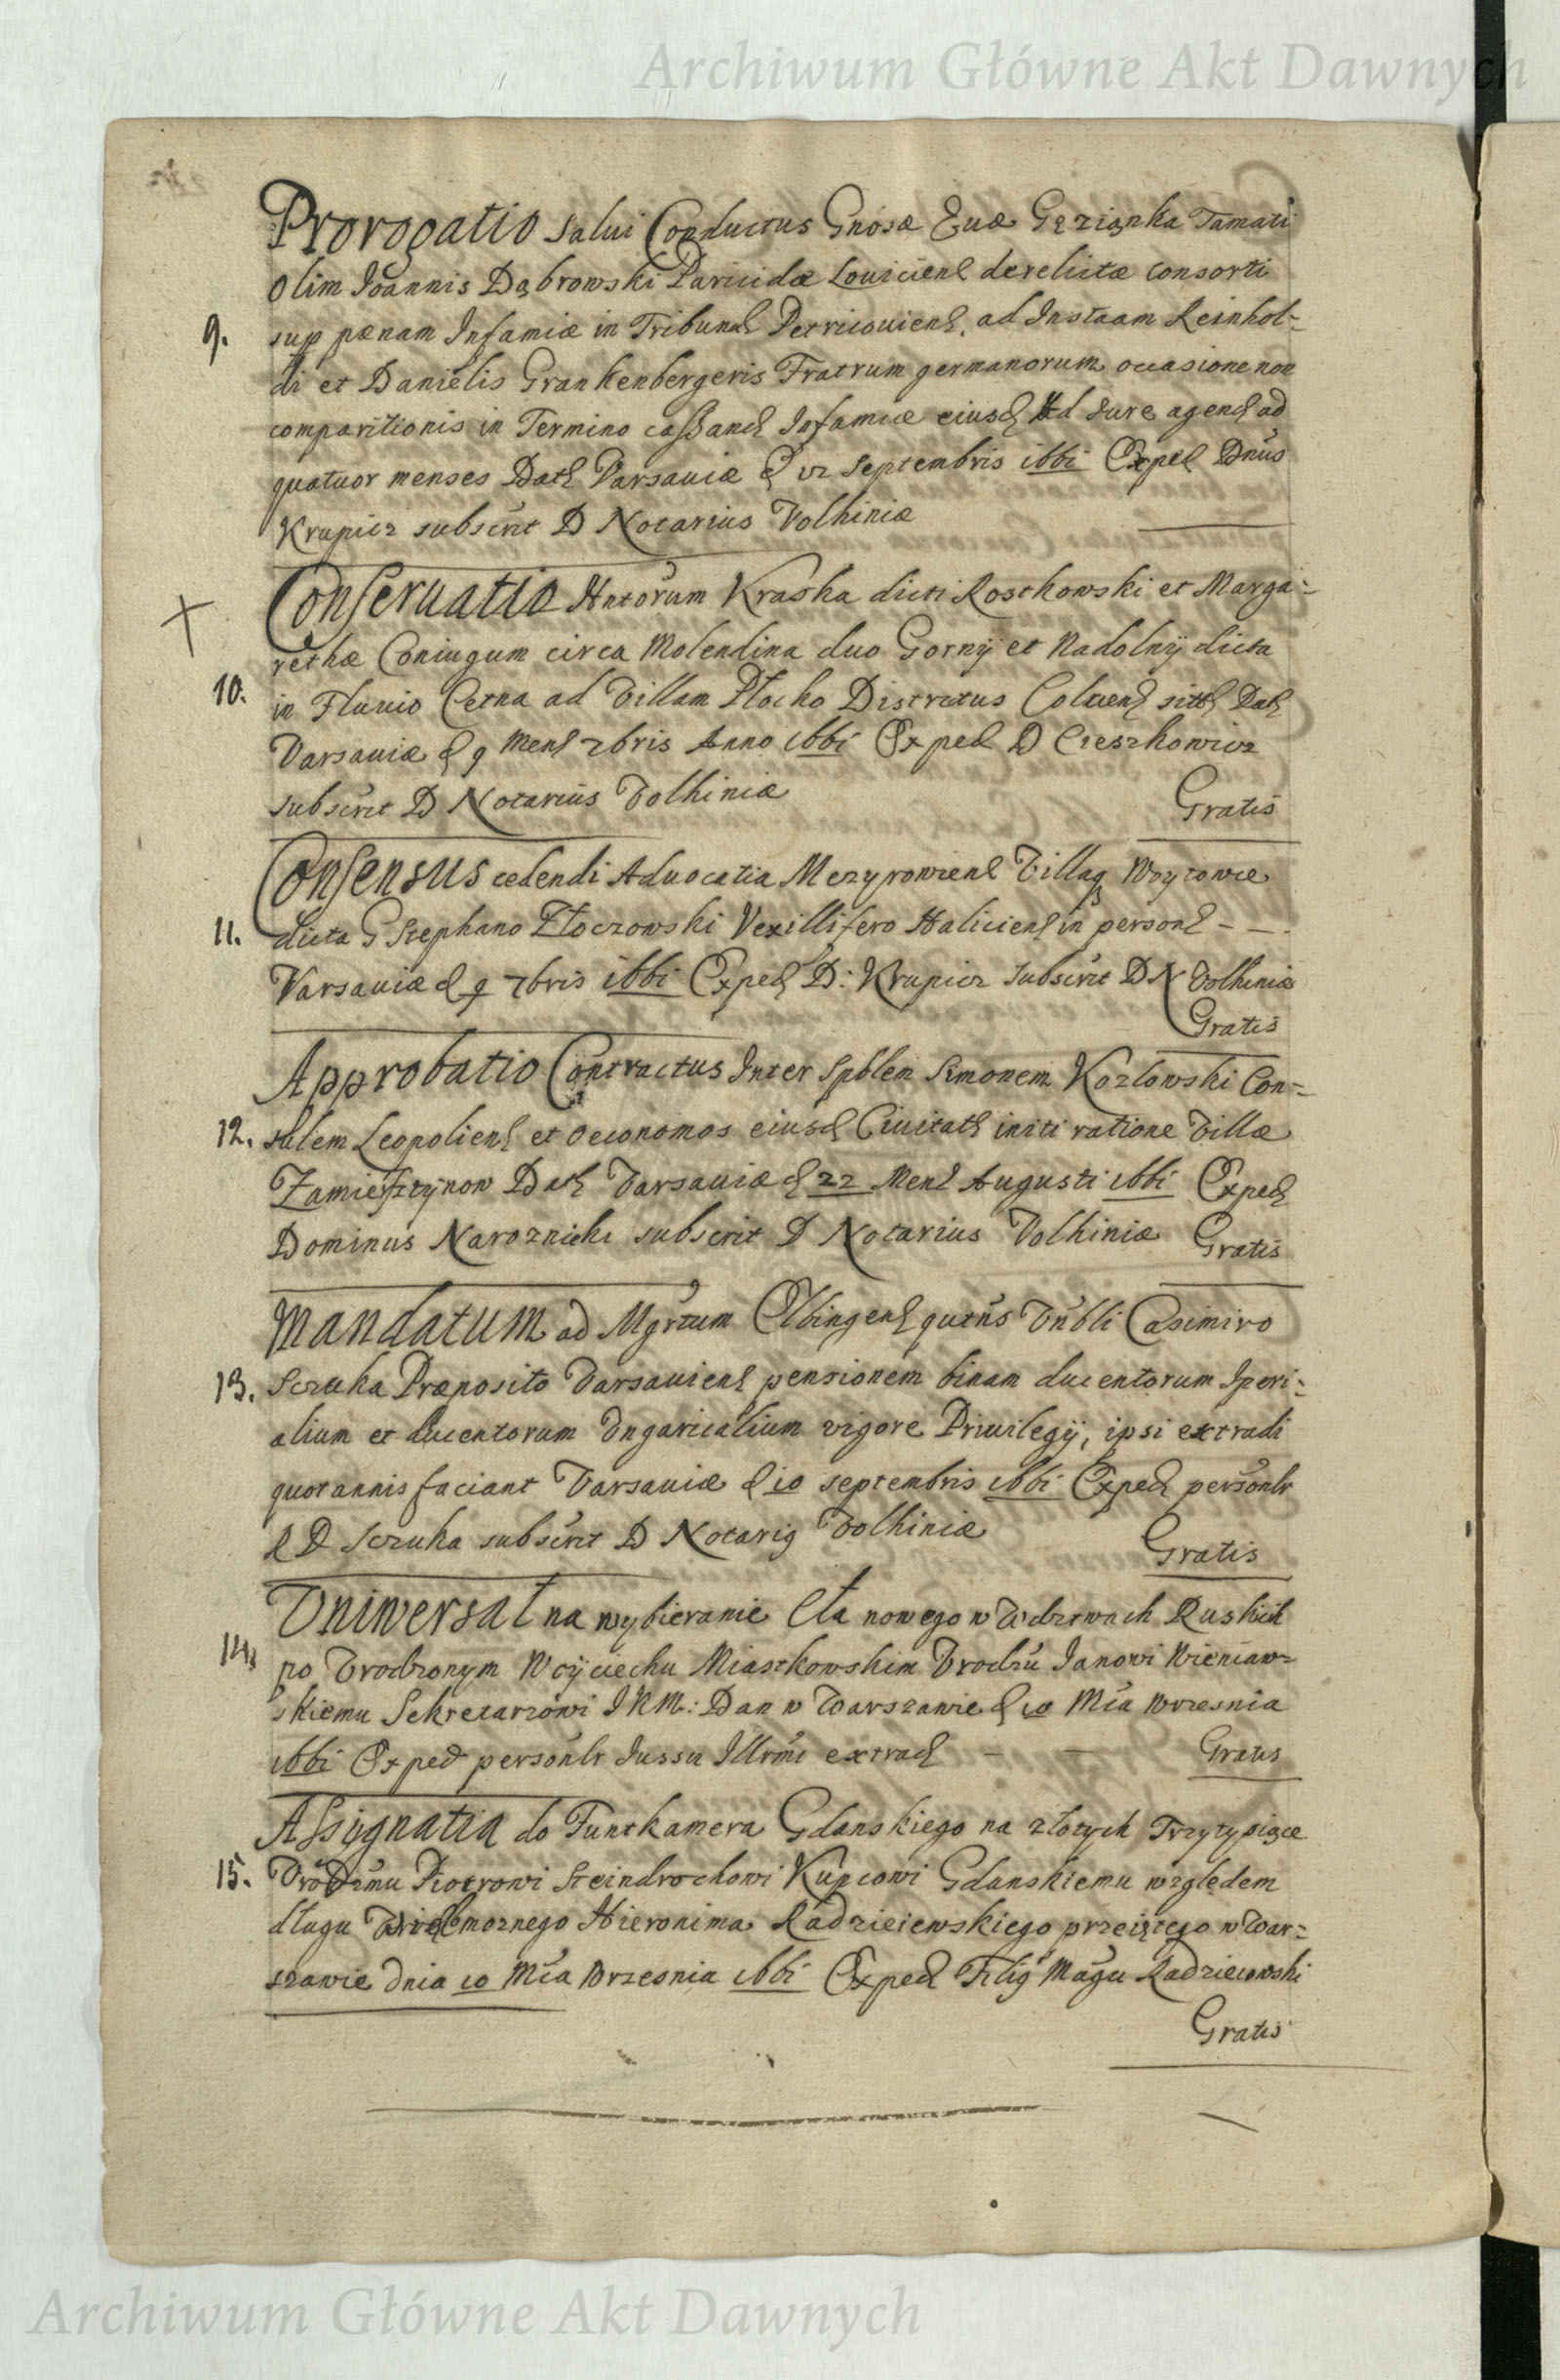 Archiwum Główne Akt Dawnych
Prorogatio salui Conductus Gnosæ Euæ Gęzianka Tamati
Olim Joannis Dąbrowski Paricidæ Louiciens derelictæ consorti
9. sup pænam Infamiæ in Tribunal Petricouiens. ad Instaam Reinhol=
di et Danielis Grankenbergeris Fratrum germanorum occasione non
comparitionis in Termino cassand Infamiæ eiusd ad Jure agend ad
quatuor menses Dat Varsauiæ d 12 Septembris 1661 Exped Dnus
Krupicz subscrit D Notarius Volhiniæ
Conseruatio Hntorum Kraska dicti Rostkowski et Marga=
rethæ Coniugum circa Molendina duo Gorny et Nadolny dicta
10. in Fluuio Cetna ad Villam Płocko Districtus sitt Dat
Varsauiæ d 9 Mens 7bris Anno 1661 Exped D Cieszkowicz
subscrit D Notarius Volhiniæ Gratis
Consensus cedendi Aduocatia Mezyrowiens Villaq Woytowce
11. dicta G Stephano Płoczowski Vexillifero Haliciens in person - -
Varsauiæ d 9 7bris 1661 Exped D: Krupicz Subscrit D N Volhiniæ
Gratis
Approbatio Contractus Inter Spblem Simonem Kozlowski Con=
12. sulem Leopoliens et Oeconomos eiusd Ciuitatis initi ratione Villæ
Zamiesztynow Dat Varsauiæ d 22 Mens Augusti 1661 Exped
Dominus Naroznicki subscrit D Notarius Volhiniæ Gratis
Mandatum ad Mgrtum Elbingens qutns Vnbli Casimiro
13. Sczuka Præposito Varsauiens pensionem binam ducentorum Iperi=
alium et ducentorum Vngaricalium vigore Priuilegij, ipsi extradi
quotannis faciant Varsauiæ d 10 septembris 1661 Exped personlr
R D Sczuka subscrit D Notarig Volhiniæ Gratis
Vniwersał na wybieranie Cła nowego w Wdztwach Ruskich
14. po Vrodzonym Woyciechu Miastkowskim Vrodzu Janowi Wieniaw=
skiemu Sekretarzowi JKM: Dan w Warszawie d 10 Mca Wrzesnia
1661 Exped personlr Jussu Illrmi extrad - - Gratis
Assygnatia do Funtkamera Gdanskiego na złotych Trzytysiące
15. Vrodzmu Piotrowi Steindrochowi Kupcowi Gdanskiemu względem
długu Wielmoznego Hieronima Radzieiewskiego przeiętego w War=
szawie dnia 10 Mca Wrzesnia 1661 Exped Filig Magci Radzieiowski
Gratis
Archiwum Główne Akt Dawnych